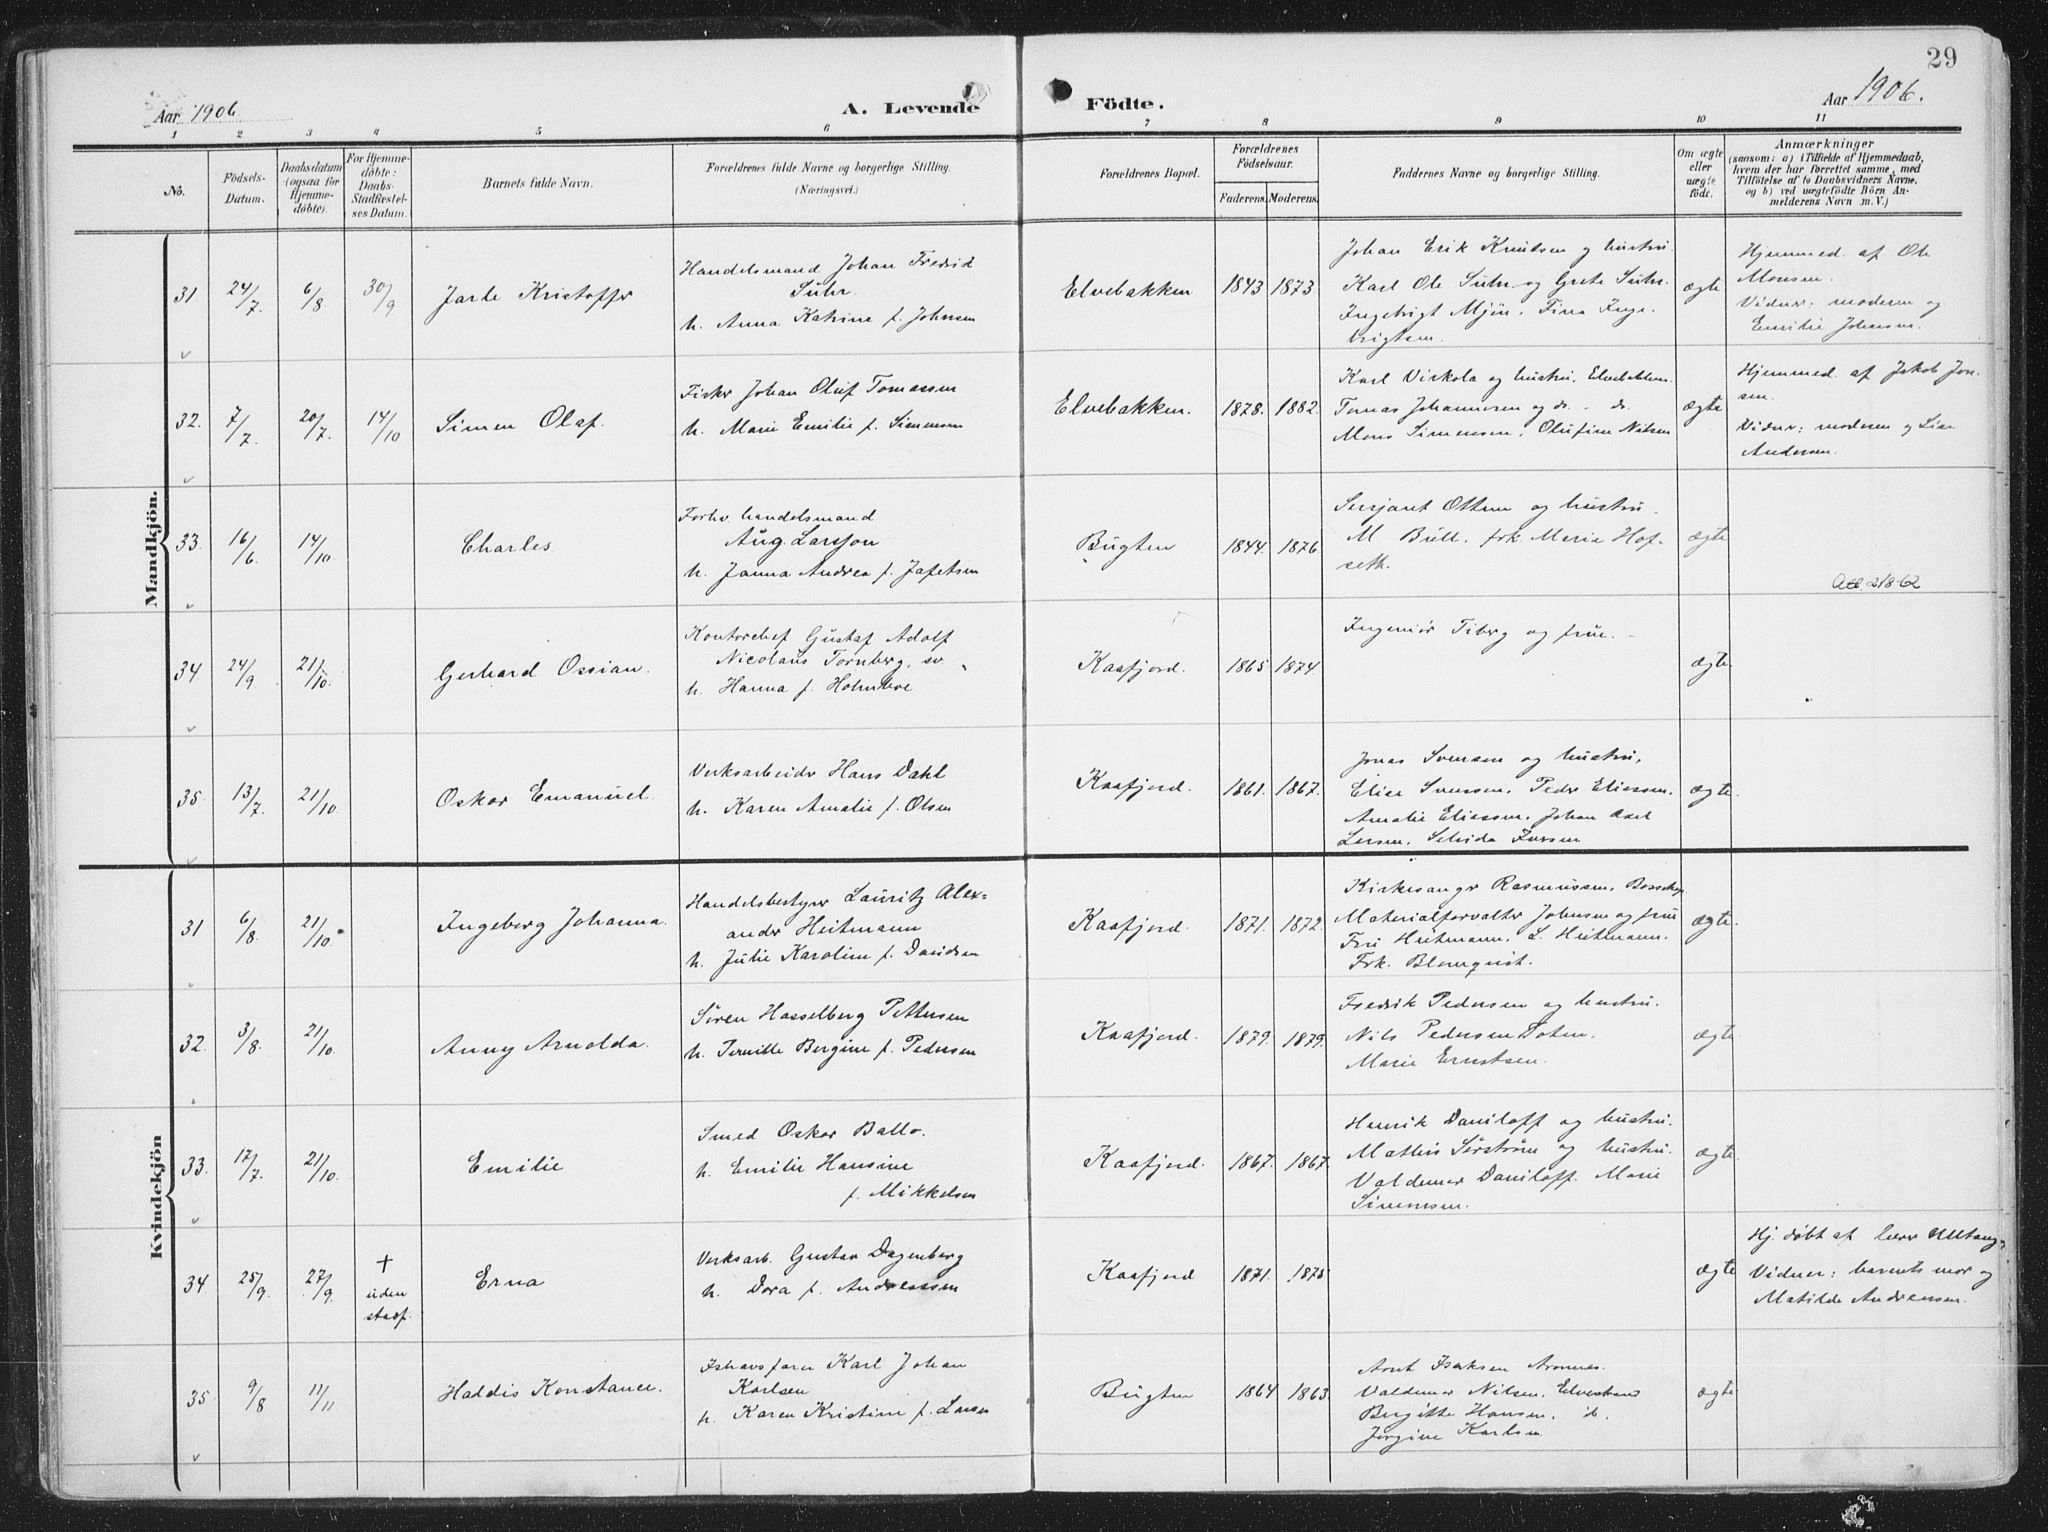 29
Aar 1906.
A. Levende
Födte.
Aar 1906.
1 2 3 4 5 6 7 8 9 10 11
No.
Födsels-
Datum.
Daabsdatum
(ogsaa for
Hjemme-
döbte).
For Hjemme-
döbte:
Daabs-
Stadfæstel-
ses Datum.
Barnets fulde Navn.
Forældrenes fulde Navne og borgerlige Stilling.
(Næringsvei.)
Forældrenes Bopæl.
Forældrenes
Födselsaar.
Faderens. Moderens.
Faddernes Navne og borgerlige Stilling.
Om ægte
eller
uægte
födt.
Anmærkninger
(saasom: a) i Tilfælde af Hjemmedaab,
hvem der har forrettet samme, med
Tilföielse af to Daabsvidners Navne,
og b) ved uægtefödte Börn An-
melderens Navn m. V.)
Mandkjön.
31. 24/7. 6/8 30/9 Jarle Kristoffer
Handelsmand Johan Fredrik
Suhr.
h. Anna Katrine f. Johnsen
Elvebakken 1843 1873
Johan Erik Knutsen og hustru.
Karl Ole Suhr og Grete Suhr.
Ingebrigt Mjön. Fina Inge-
brigtsen.
ægte
Hjemmed. af Ole
Monsen.
Vidner: moderen og
Emilie Johansen.
32. 7/7. 20/7. 14/10 Simen Olaf.
Fisker Johan Oluf Tomassen
h. Marie Emilie f. Simensen
Elvebakken. 1878. 1882.
Karl Virkola og hustru, Elvebakken.
Tomas Johannesen og do. - do.
Mons Simensen. Olufine Nilsen
ægte
Hjemmed. af Jakob Jon-
sen.
Vidner: moderen og Lise
Andersen.
33. 16/6. 14/10 Charles
Forhv. handelsmand
Aug. Larsson
h. Janna Andrea f. Jafetsen
Bugten 1844. 1876.
Sersjant Ottem og hustru.
M. Bull. frk. Maria Hof-
seth.
ægte
Att. 21/8-62
34 24/9 21/10. Gerhard Ossian.
Kontorchef Gustaf Adolf
Nicolaus Tornberg, sv.
h. Hanna f. Holmboe
Kaafjord. 1865 1874.
Ingeniör Tiberg og frue.
ægte
35. 13/7. 21/10. Oskar Emanuel.
Verksarbeider Hans Dahl
h. Karen Amalie f. Olsen
Kaafjord. 1861. 1867.
Jonas Svensen og hustru,
Elise Svensen. Peder Eliassen.
Amalie Eliassen. Johan Axel
Larsen.
ægte.
Kvindekjön
31 6/8. 21/10. Ingeborg Johanna.
Handelsbestyrer Lauritz Alex-
ander Heitmann
h. Julie Karoline f. Davidsen
Kaafjord. 1871. 1872.
Kirkesanger Rasmussen, Bossekop.
Materialforvalter Johnsen og frue
Fru Heitmann. L. Heitmann.
Frk. Blomquist.
ægte.
32. 3/8. 21/10. Anny Arnolda.
Sören Hasselberg Pettersen
h. Pernille Bergine f. Pedersen
Kaafjord. 1879. 1879.
Fredrik Pedersen og hustru.
Nils Pedersen Toten.
Marie Ernstsen.
ægte
33. 17/7. 21/10. Emilie
Smed Oskar Ballo.
h. Emilie Hansine
f. Mikkelsen
Kaafjord. 1867. 1867.
Henrik Daniloff og hustru.
Mathis Sörström og hustru.
Valdemar Daniloff. Marie
Simensen.
ægte
34 25/9. 27/9. + uden stadf. Erna
Verksarb. Gustav Dagenborg
h. Dora f. Andreassen
Kaafjord 1871. 1875
ægte
Hj. döbt af lærer Altang.
Vidner: barnets mor og
Matilde Andreassen.
35. 9/8 11/11 Haddis Konstance.
Ishavsfarer Karl Johan
Karlsen
h. Karen Kristine f. Larsen
Bugten 1864 1863.
Arnt Isaksen Aronnes.
Valdemar Nilsen. Elvestrand
Bergitte Hansen. do.
Jörgine Karlsen
ægte